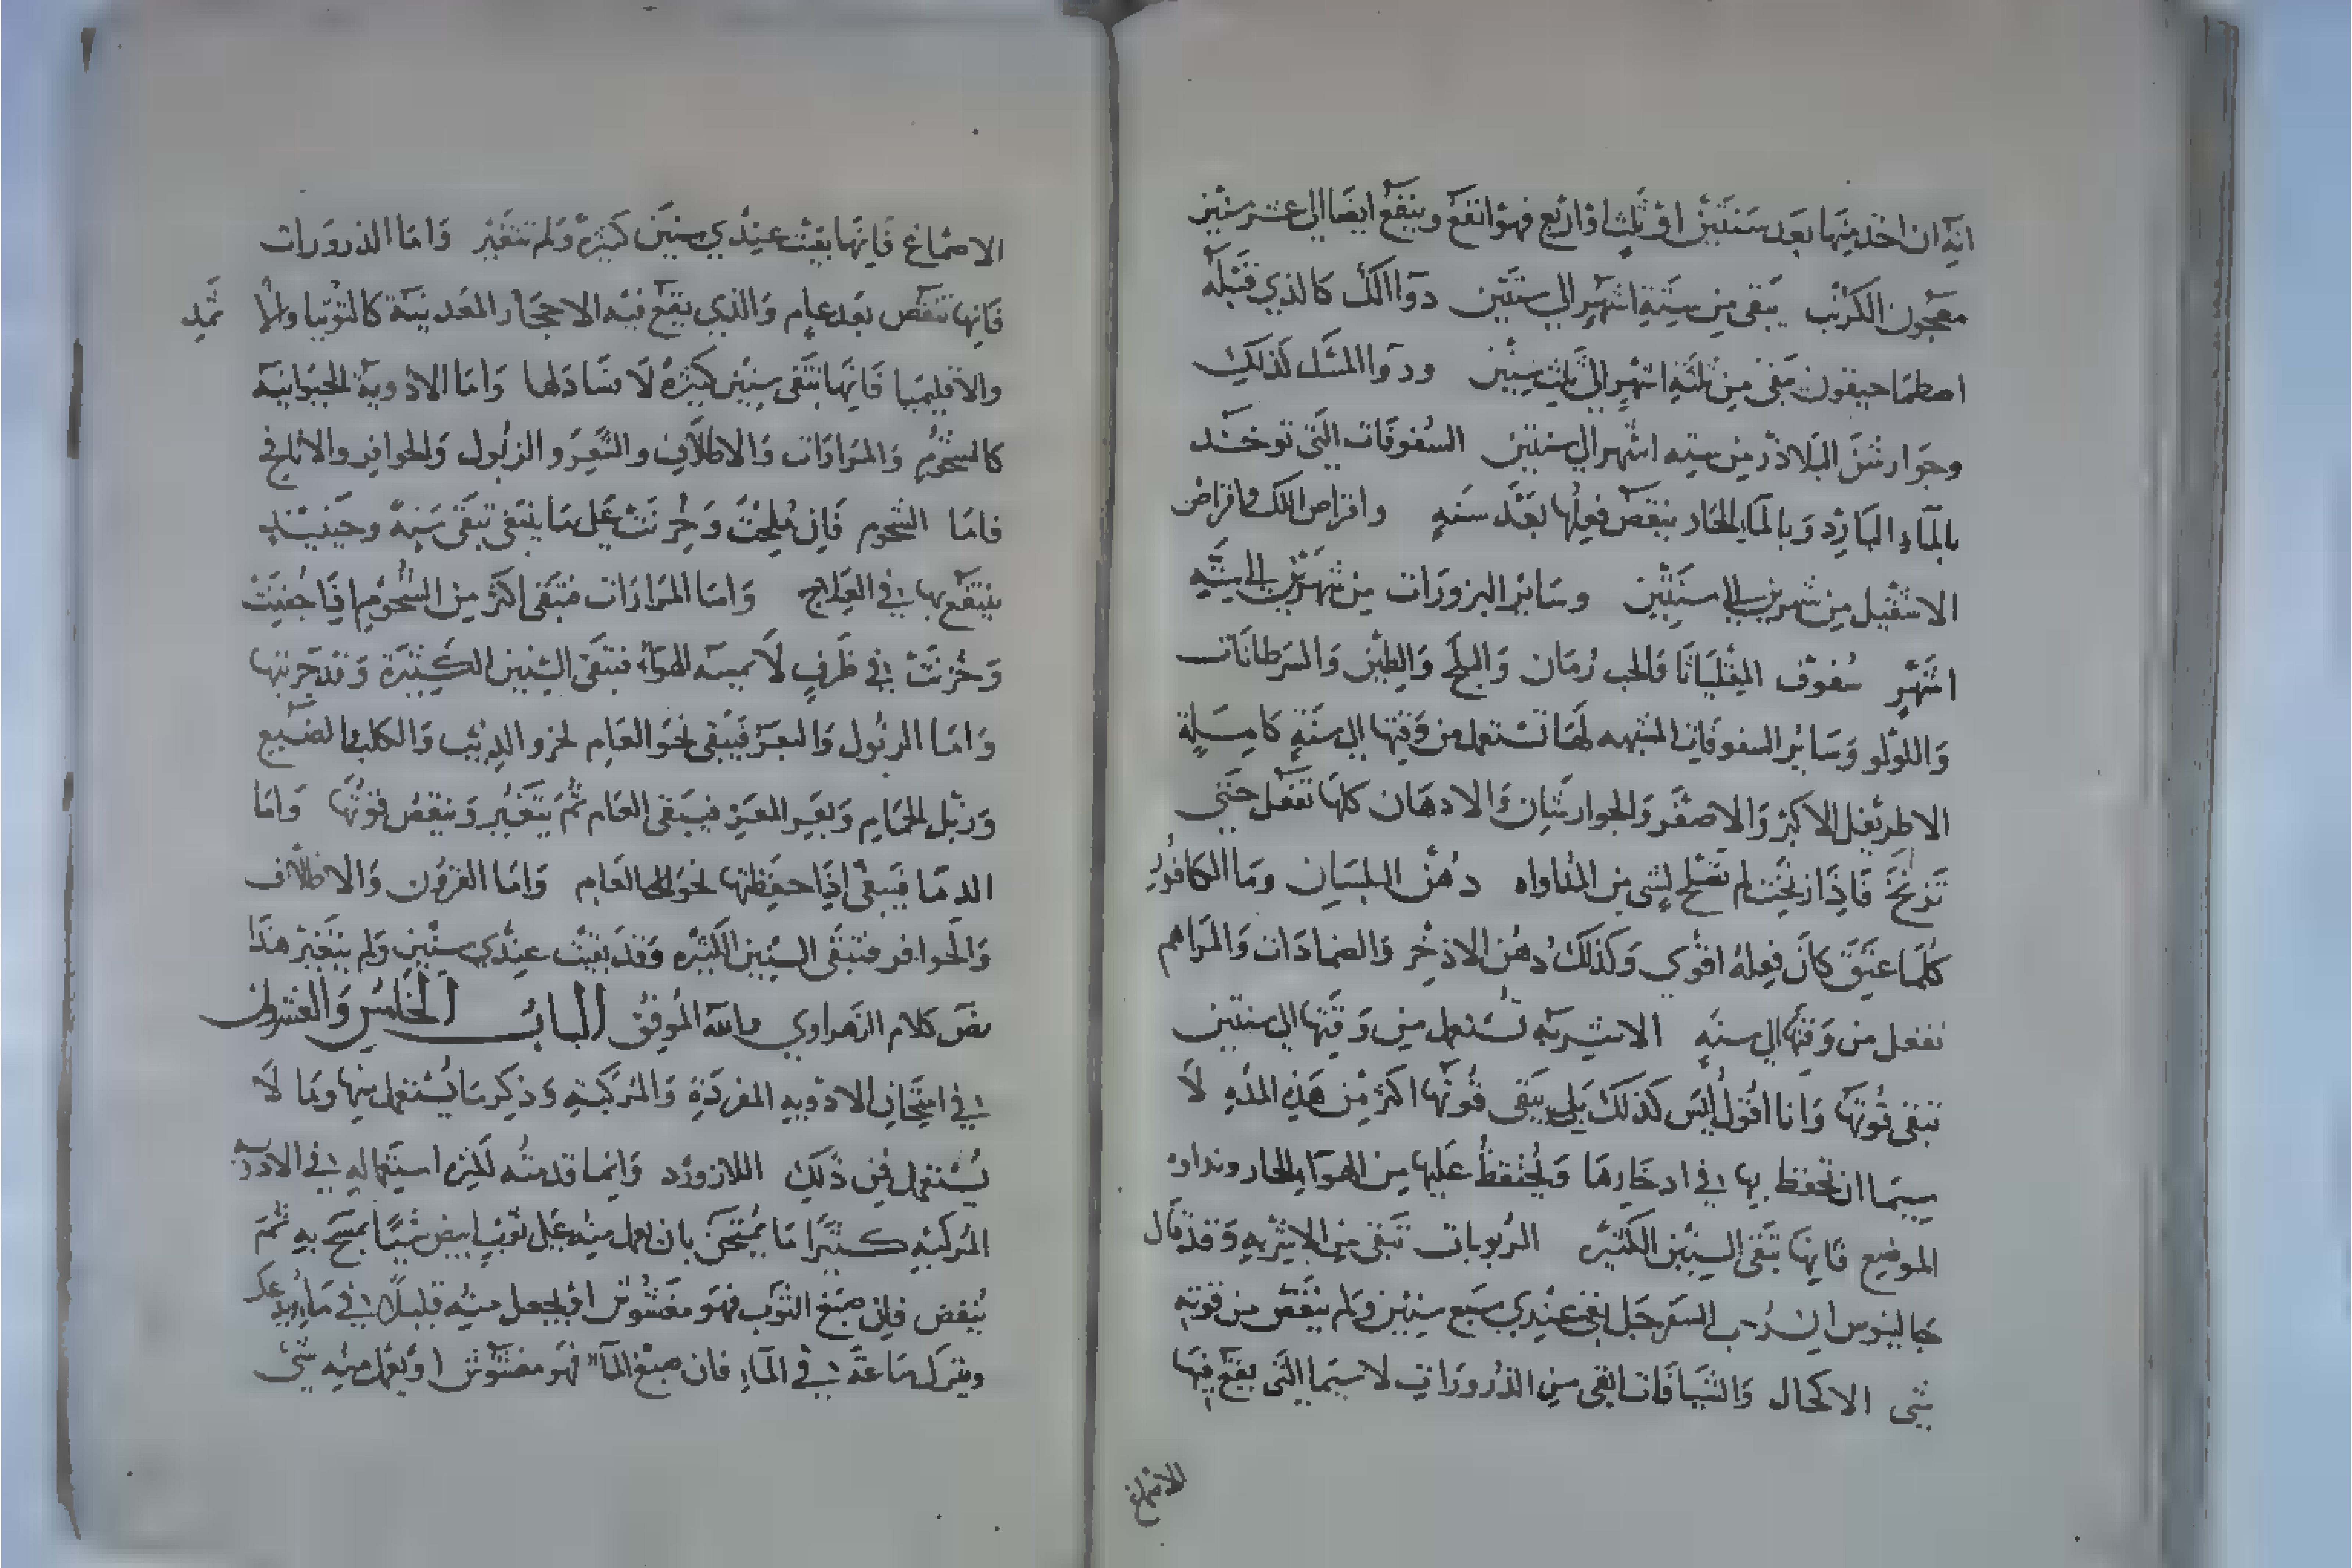 انه ان اخذ منها بعد سنتين او ثلث او اربع فهو انفع وينفع ايضا الى عشر سنين
معجون الكرنب يبقى من ستة اشهر الى سنتين دوا الك كالذي قبله
اصطماحيقون يبقى من ثلثة اشهر الى ثلث سنين ودوا المسك كذلك
وجوارشن البلاذر من سته اشهر الى سنتين السفوفات التى توخد
بالماء البارد وبالماء الحار ينقص فعلها بعد سنه واقراص الك واقراص
من شهرين الى سنتين وساير البزورات من شهرين الى ستة
اشهر سفوف المقلياثا والحب رمان والبلح والطين والسرطانات
واللولو وساير السفوفات المشبهه لها تستعمل من وقتها الى سنة كاملة
الاطريفل الاكبر والاصغر والجوارشنات والادهان كلها تفعل حتى
تزنخ فاذا زنخت لم تصلح لشى من المداواه دهن البلسان وما الكافور
كلما عتق كان فعله اقوي وكذلك دهن الاذخر والضمادات والمراهم
تفعل من وقتها الى سنه الاشربه تستعمل من وقتها الى سنتين
تبقى قوتها وانا اقول ليس كذلك بل يبقى قوتها اكثر من هذه المده لا
سيما ان تحفظ بها في ادخارها ويحتفظ عليها من الهوا الحار ونداوة
الموضع فانها تبقى السنين الكثيره الربوبات تبقى من الاشربه وقد قال
جالينوس ان رب السفرجل بقى عندي سبع سنين ولم ينقص من قوته
شى الاكحال والشيافات ابقى من الذرورات لا سيما التى يقع فيها
الاصماغ
الاصماغ فانها بقيت عندي سنين كثيرة ولم تتغير واما الذرورات
فانها تنقص بعد عام والذي يقع فيه الاحجار المعدنية كالتوتيا والا ثمد
والاقليميا فانها تبقى سنين كثيرة لا فساد لها واما الادوية الحيوانية
كالشحوم والمرارات والاظلاف والبعر والزبول والحوافر والانافح
فاما الشحوم فان ملحت وخزنت على ما ينبغى تبقى سنة وحينيذ
ينتفع بها في العلاج واما المرارات فتبقى اكثر من الشحوم اذا جففت
وخزنت في ظرف لا يمسه الهوا فتبقى السنين الكثيرة وقد جربتها
واما الزبول والبعر فيبقى نحو العام لخرو الذيب والكلب الضبع
وزبل الحمام وبعر المعز فيبقى العام ثم يتغير وينقص قوتها واما
الدما فيبقى اذا حفظتها نحو العام واما القرون والاظلاف
والحوافر فتبقى السنين الكثيره وقد بقيت عندي سنين ولم يتغير هذا
نص كلام الزهراوي والله الموفق الباب الخامس والعشرون
في امتحان الادويه المفردة والمركبة وذكر ما يستعمل منها وما لا
يستعمل فمن ذلك اللازورد وانما قدمته لكثره استعماله في الادوية
المركبه كثيرا ما يمتحن بان يعمل منه على ثوب ابيض شيا يمسح به ثم
ينفض فان صبغ الثوب فهو مغشوش او يجعل منه قليلا في ما
ويترك ساعة في الماء فان صبغ الما فهو مغشوش او يعمل منه شى